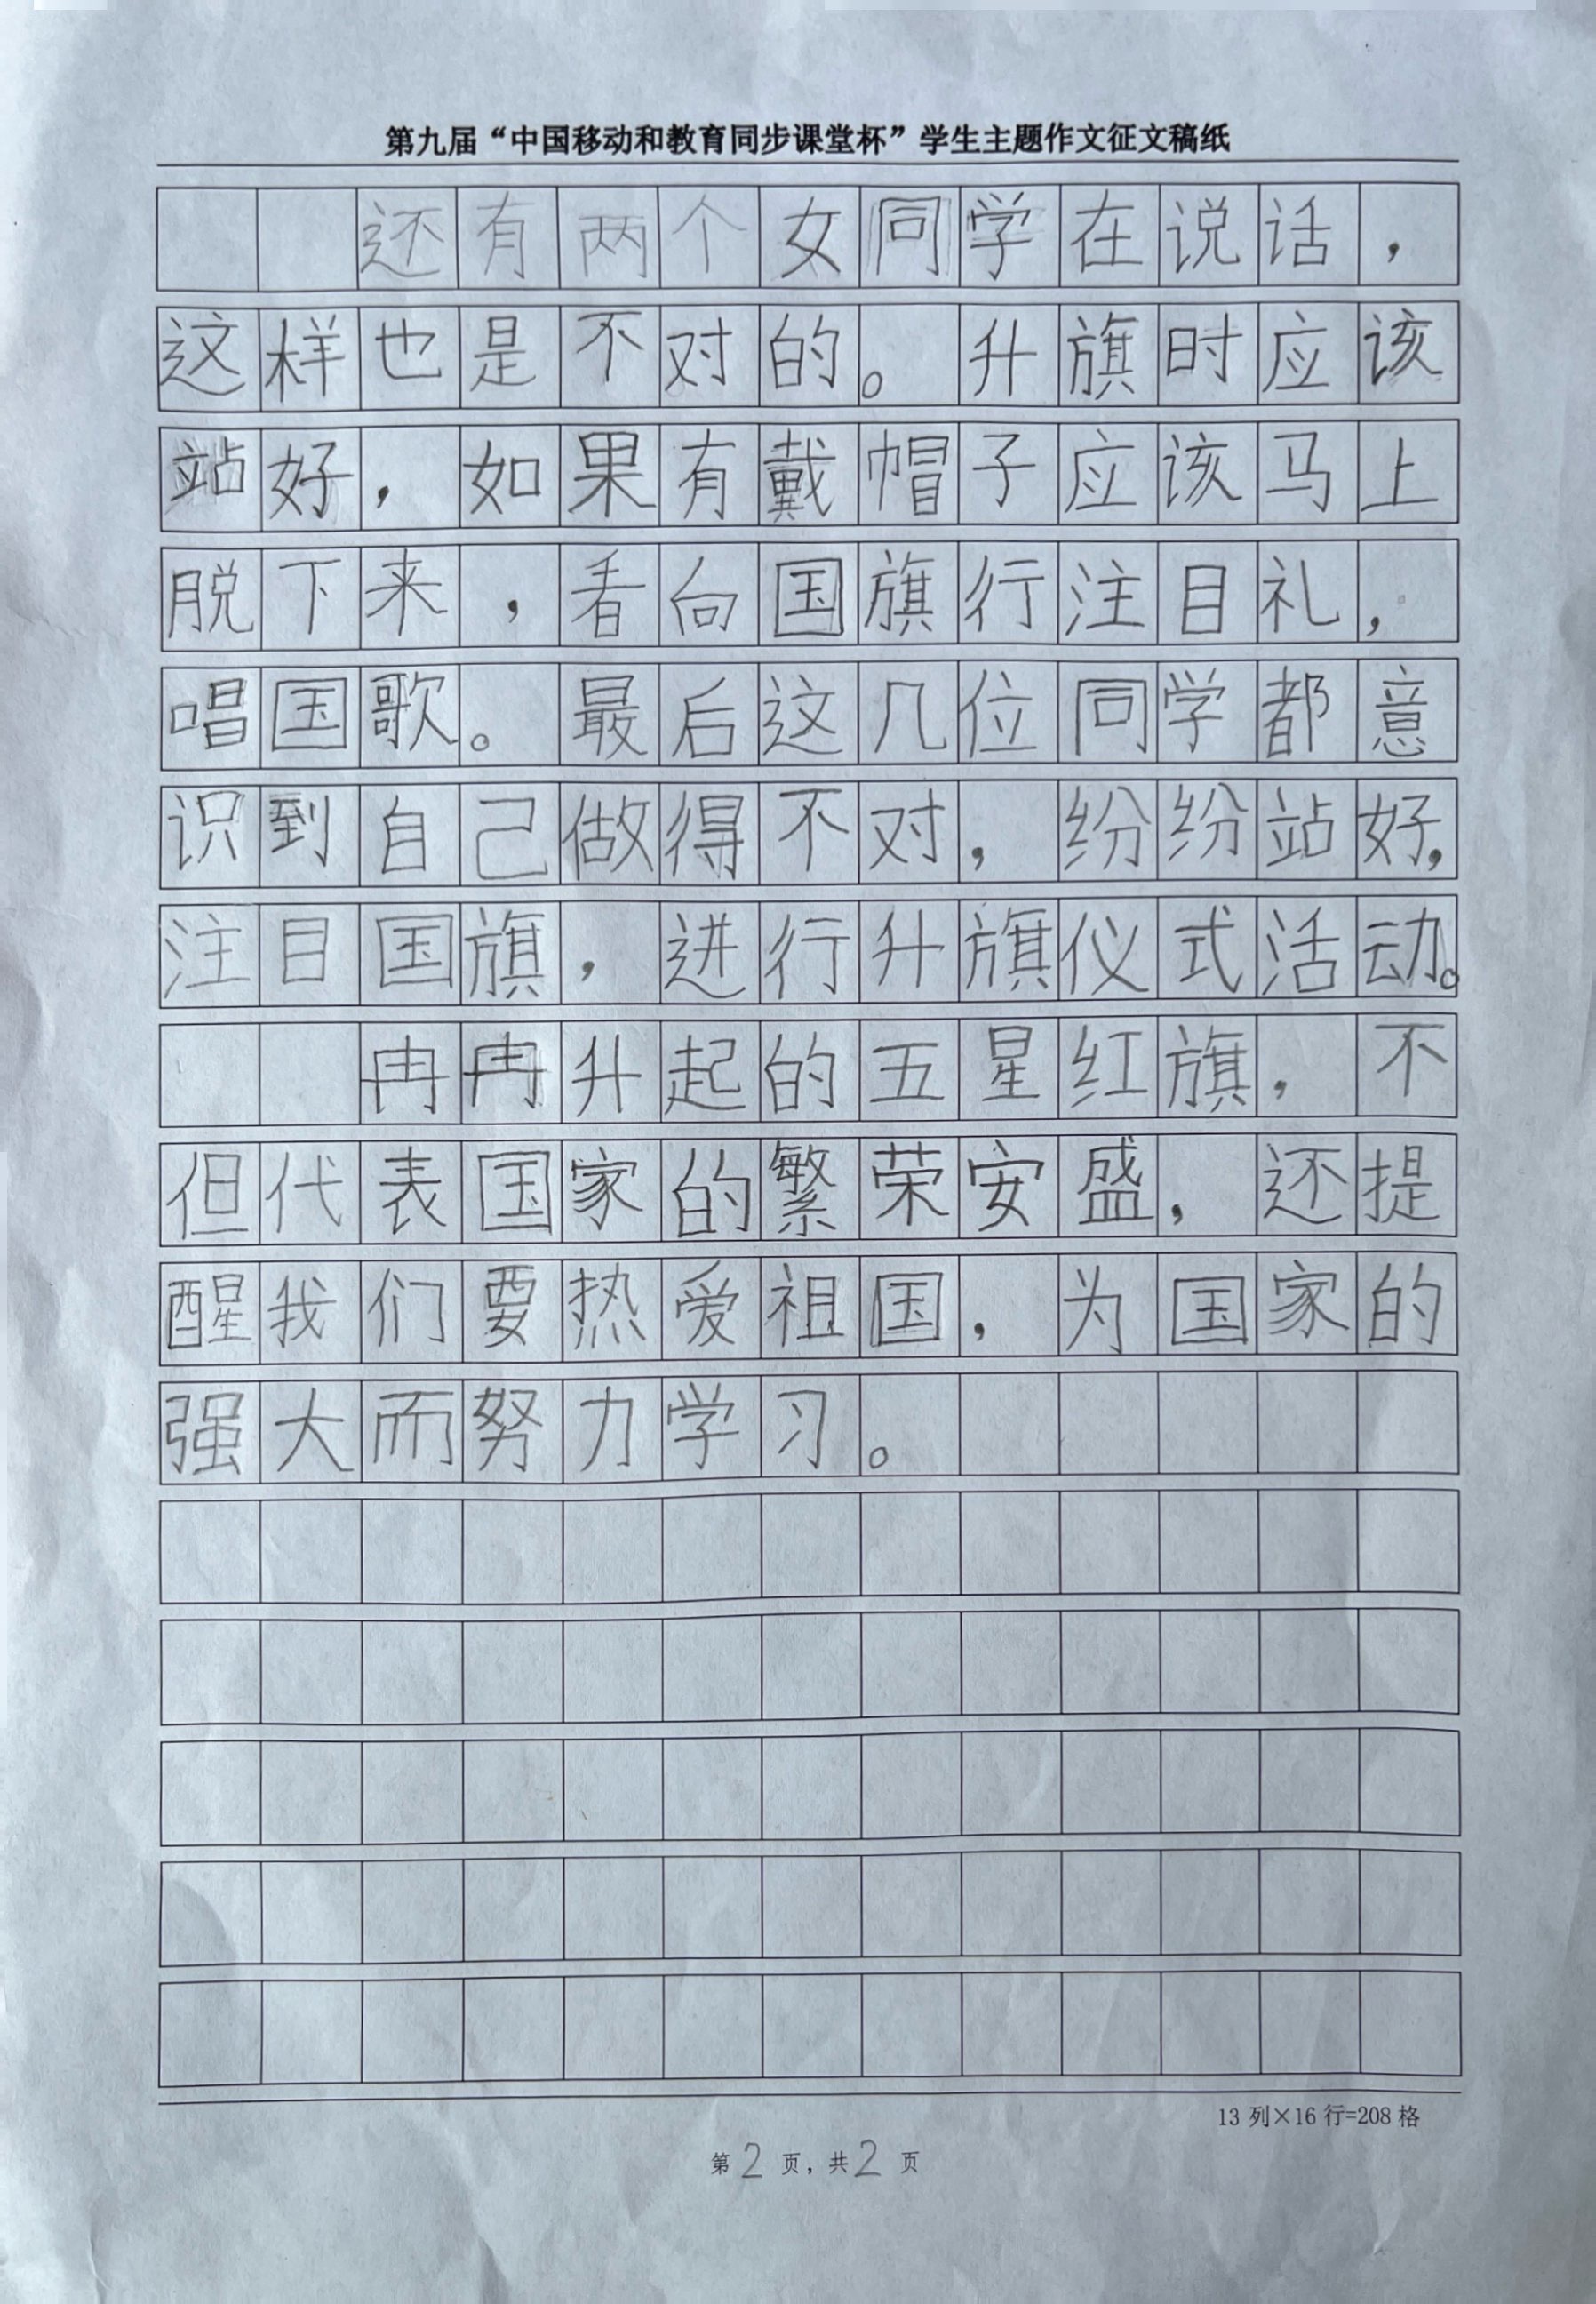 第九届“中国移动和教育同步课堂杯”学生主题作文征文稿纸
还有两个女同学在说话，
这样也是不对的。升旗时应该
站好，如果有戴帽子应该马上
脱下来，看向国旗行注目礼，
唱国歌。最后这几位同学都意
识到自己做得不对，纷纷站好，
注目国旗，进行升旗仪式活动。
冉冉升起的五星红旗，不
但代表国家的繁荣安盛，还提
醒我们要热爱祖国，为国家的
强大而努力学习。
13 列×16 行=208 格
第 2 页，共 2 页